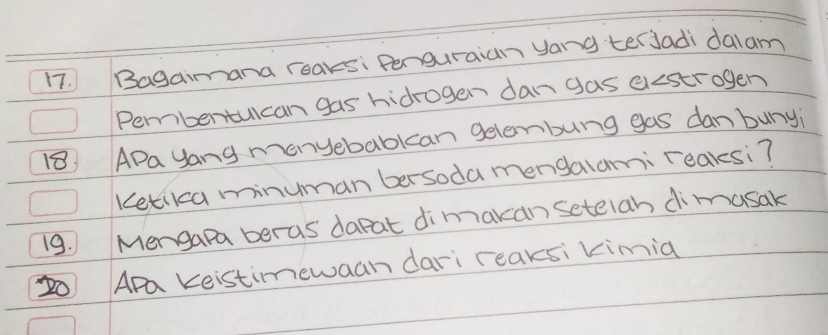 17. Bagaimana reaksi Penguraian yang terjadi dalam
Pembentukan gas hidrogen dan gas ekstrogen
18. APa yang menyebabkan gelembung gas dan bunyi
Ketika minuman bersoda mengalami reaksi?
19. Mengapa beras dapat dimakan setelah dimasak
20 APa keistimewaan dari reaksi kimia